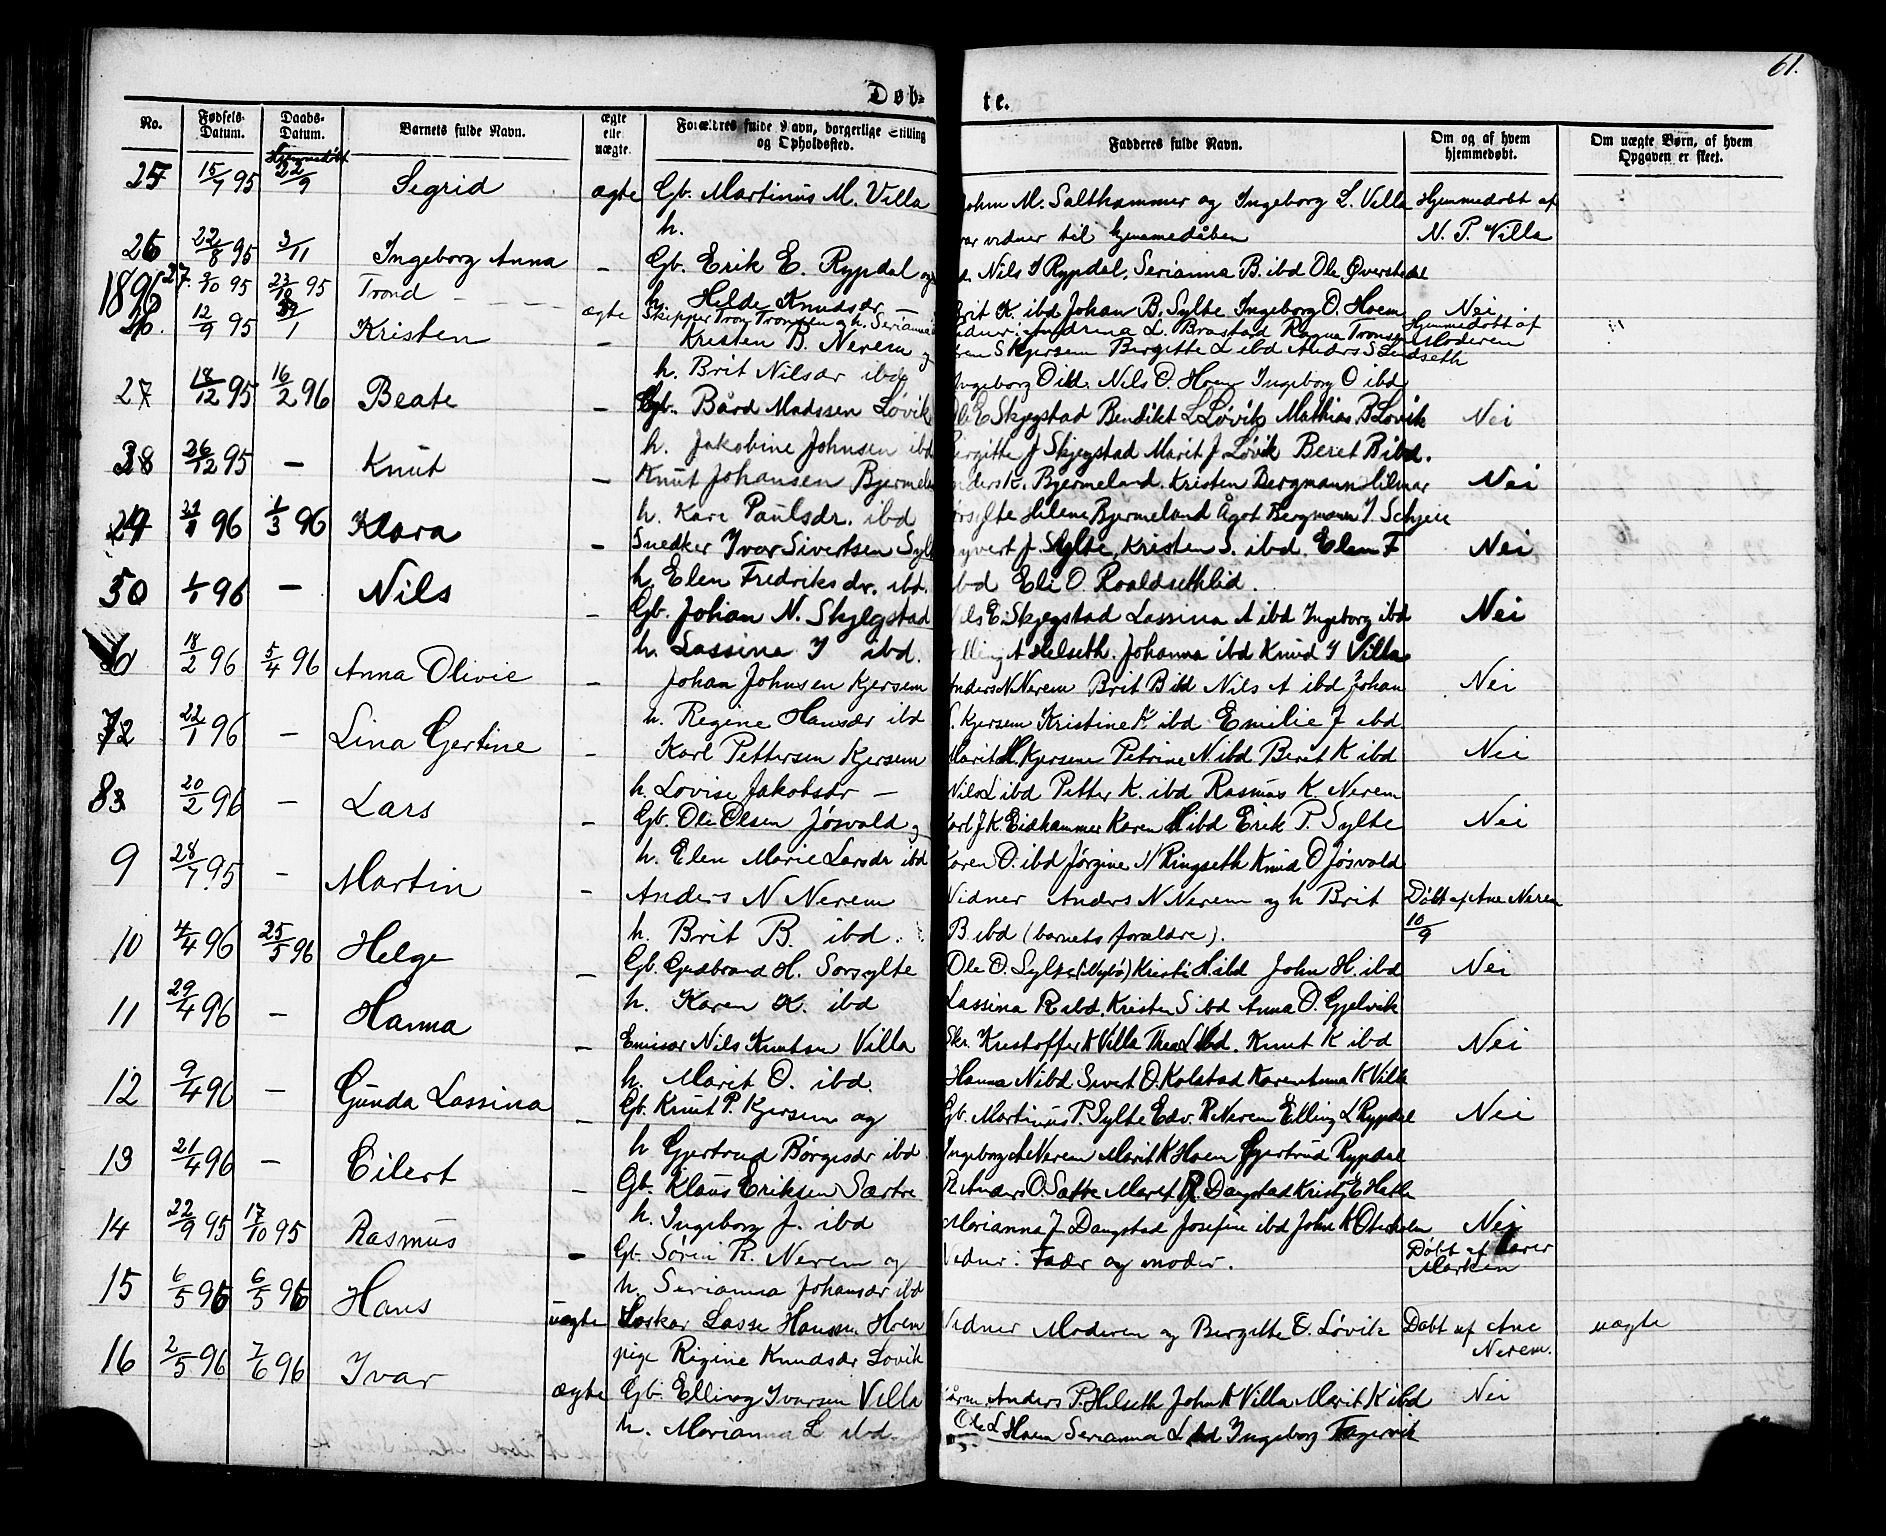 61.
Døb-
te.
No.
Fødsels-Datum.
Daabs-Datum.
Barnets fulde Navn.
ægte elle uægte.
Forældres fulde Navn, borgerlige Stilling og Opholdssted.
Fadderes fulde Navn.
Om og af hvem hjemmedøbt.
Om uægte Børn, af hvem Opgaven er skeet.
25 15/7 95 Hjemmedøbt 22/9 Segrid ægte Gb. Martinus M. Villa John M. Salthammer og Ingeborg L. Villa Hjemmedøbt af
h. var vidner til hjemmedåben N. P. Villa
26 22/8 95 3/11 Ingeborg Anna — Gb. Erik E. Rypdal og Nils I Rypdal, Serianna B. ibd Ole Øverstedal
h. Helde Knudsdr — Brit K. ibd Johan B. Sylte Ingeborg O. Hoem Nei
27. 2/10 95 23/10 95 Trond ægte Skipper Tron Tronsen og h. Serianna
1896
12/9 95 /1 Kristen — Kristen B. Nerem og Hjemmedøbt af Moderen
h. Brit Nilsdr ibd Ingeborg O ibd. Nils O. Hoem Ingeborg O ibd
27 18/12 95 16/2 96 Beate — Gb. Bård Madssen Løvik Ole E Skjegstad Bendikt L Løvik Mathias B Løvik Nei
h. Jakobine Johnsen ibd Birgitte J Skjegstad Marit J Løvik Beret B ibd.
28 26/12 95 — Knut — Knut Johansen Bjermeland Anders K. Bjermeland. Kristen Bergmann Hilmar Nei
h. Kari Paulsdr. ibd Sorsylte Helene Bjermeland Ågot Bergmann J. Schjeie
96 1/3 96 Klara — Snedker Ivar Sivertsen Sylte Syvert J. Sylte, Kristen S. ibd. Elen F Nei
h. Elen Fredriksdr. ibd. ibd Eli O. Roaldsethlid.
50 1/1 96 — Nils — Gb. Johan N. Skjegstad Nils E. Skjegstad Lassina A ibd Ingeborg ibd Nei
h. Lassine I ibd. Elling A Helseth. Johanna ibd Knud I Villa
6 18/2 96 5/4 96 Anna Olivie — Johan Johnsen Kjersem Anders N Nerem Brit B ibd Nils A ibd Johan Nei
h. Regine Hansdr ibd J. Kjersem Kristine K. ibd Emilie J ibd
72 22/1 96 — Lina Gertine — Karl Pettersen Kjersem Marit H. Kjersem Petrine N ibd Beret K ibd Nei
h. Lovise Jakobsdr — Nils L ibd Petter K. ibd Rasmus K. Nerem
83 20/2 96 — Lars — Gb. Ole Olsen Jøsvold og Karl J. K. Eidhammer Karen H ibd Erik P. Sylte Nei
h. Elen Marie Larsdr ibd Karen O. ibd Jørgine N Ringseth Knud O Jøsvold
9 28/7 95 — Martin — Anders N Nerem Vidner Anders N Nerem og h Brit Døbt af Ane Nerem
h. Brit B. ibd. B ibd (barnets forældre). 10/9
10 4/4 96 25/5 96 Helge — Gb. Gudbrand H. Sorsylte Ole O. Sylte (Nybø) Kristi H ibd John H. ibd Nei
h. Karen K. ibd Lassina R ibd. Kristen S ibd Anna O. Gjelvik
11 29/4 96 — Hanna — Emissær Nils Knutsen Villa Skr. Kristoffer K Villa Thea L ibd. Knut K ibd Nei
h. Marit O. ibd Hanna N ibd Sivert O. Kolstad Karen Anna K Villa
12 9/4 96 — Gunda Lassina — Gb. Knut P. Kjersem og Gb. Martinus P. Sylte Edv. R Nerem Elling L Rypdal Nei
h Gjertrud Børgesdr ibd Ingeborg A Nerem Marit K Hoem Gjertrud Rypdal
13 21/4 96 — Eilert — Gb. Klaus Eriksen Sætre Anders O. Sætre Maret R. Daugstad Kristj E Hatle
h. Ingeborg J. ibd Marianna J Daugstad Josefine ibd John K Nei
14 22/9 95 17/10 95 Rasmus — Gb. Søren R. Nerem og Vidner: Fader og moder. Døbt af
h. Serianna Johansdr ibd
15 6/5 96 6/5 96 Hans uægte Løskar Lasse Hansen Hoem Vidner Moderen og Bergitte O. Løvik Døbt af Ane Nerem. uægte
pige Rigine Knudsdr Løvik
16 2/5 96 7/6 96 Ivar ægte Gb. Elling Ivarsen Villa Anders P. Helseth John K Villa Marit K ibd Nei
h. Marianna L ibd. Ole L Hoem Serianna L ibd Ingeborg Fagervik